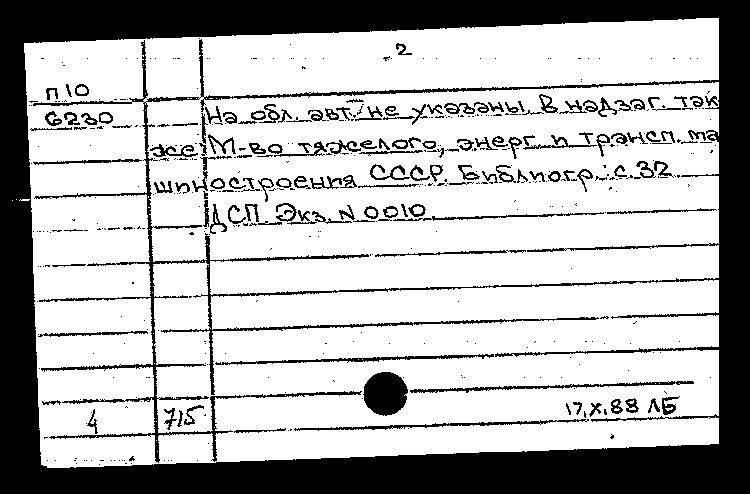 2
П10
G230 На обл. авт. не указаны. В надзаг. так
же: М-во тяжелого, энерг. и трансп. ма
шиностроения СССР. Библиогр.: с. 32
ДСП. Экз. N 0010.
4 715 17.X.88 ЛБ